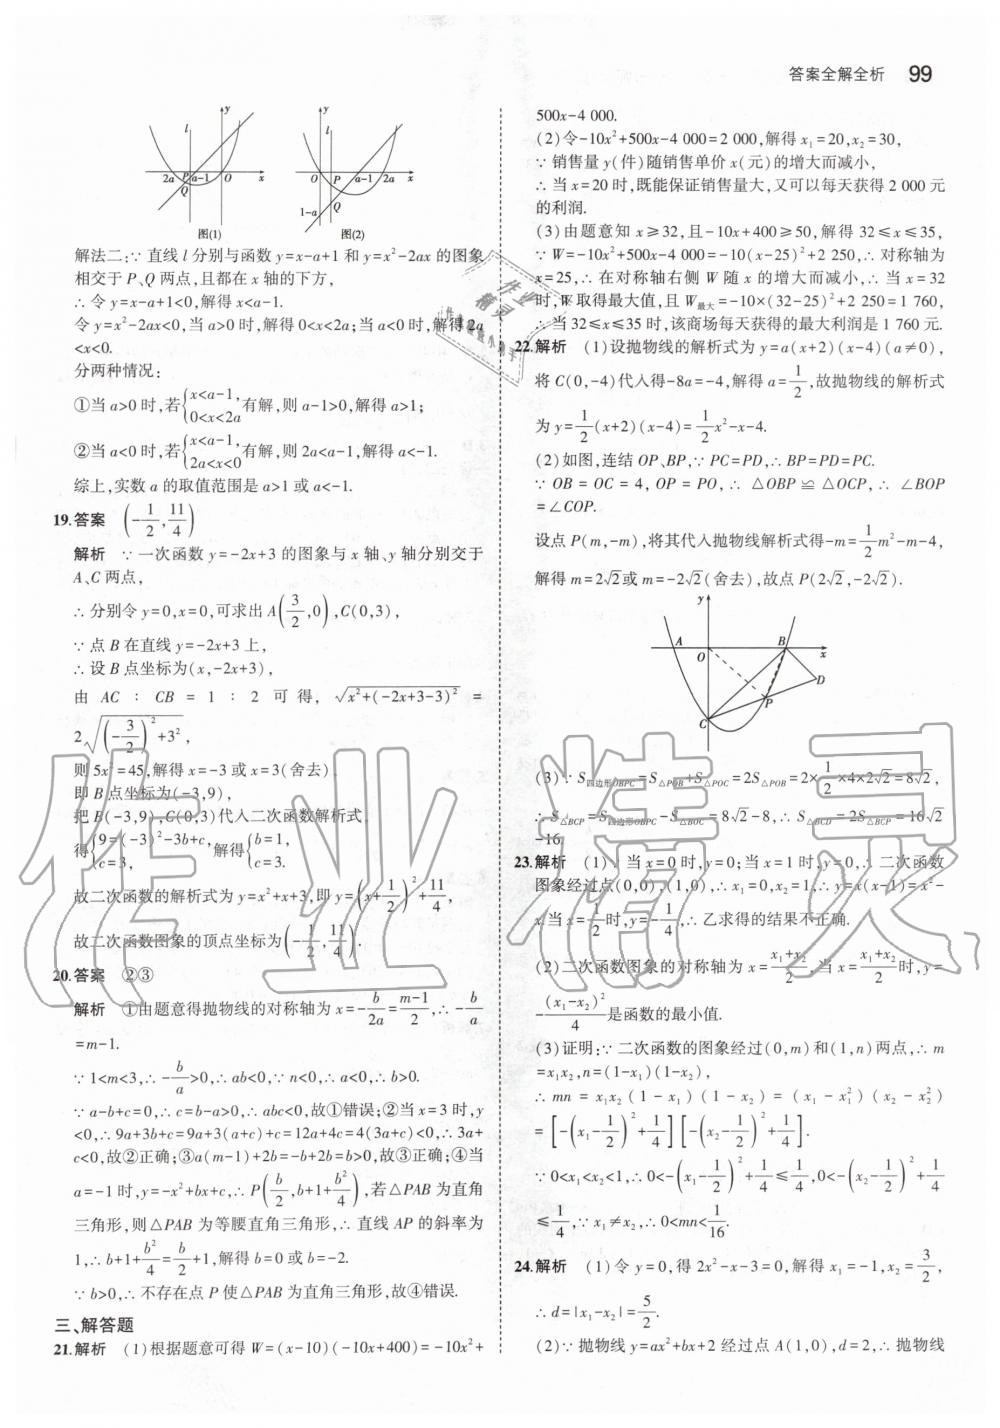 答案全解全析 99
y
l
2a P a-1 O x
Q
图(1)
y
l
O P a-1 2a x
1-a Q
图(2)
解法二:∵直线 l 分别与函数 y=x-a+1 和 y=x²-2ax 的图象
相交于 P、Q 两点,且都在 x 轴的下方,
∴令 y=x-a+1<0,解得 x<a-1.
令 y=x²-2ax<0,当 a>0 时,解得 0<x<2a;当 a<0 时,解得 2a
<x<0.
分两种情况:
①当 a>0 时,若{x<a-1, 0<x<2a 有解,则 a-1>0,解得 a>1;
②当 a<0 时,若{x<a-1, 2a<x<0 有解,则 2a<a-1,解得 a<-1.
综上,实数 a 的取值范围是 a>1 或 a<-1.
19.答案 (-1/2,11/4)
解析 ∵一次函数 y=-2x+3 的图象与 x 轴、y 轴分别交于
A、C 两点,
∴分别令 y=0,x=0,可求出 A(3/2,0),C(0,3),
∵点 B 在直线 y=-2x+3 上,
∴设 B 点坐标为(x,-2x+3),
由 AC ∶ CB = 1 ∶ 2 可得, √(x²+(-2x+3-3)²) =
2√((-3/2)²+3²),
则 5x²=45,解得 x=-3 或 x=3(舍去).
即 B 点坐标为(-3,9),
把 B(-3,9),C(0,3)代入二次函数解析式,
得{9=(-3)²-3b+c, c=3, 解得{b=1, c=3.
故二次函数的解析式为 y=x²+x+3,即 y=(x+1/2)²+11/4,
故二次函数图象的顶点坐标为(-1/2,11/4).
20.答案 ②③
解析 ①由题意得抛物线的对称轴为 x=-b/2a=(m-1)/2,∴-b/a
=m-1.
∵1<m<3,∴-b/a>0,∴ab<0,∵n<0,∴a<0,∴b>0.
∵a-b+c=0,∴c=b-a>0,∴abc<0,故①错误;②当 x=3 时,y
<0,∴9a+3b+c=9a+3(a+c)+c=12a+4c=4(3a+c)<0,∴3a+
c<0,故②正确;③a(m-1)+2b=-b+2b=b>0,故③正确;④当
a=-1 时,y=-x²+bx+c,∴P(b/2,b+1+b²/4),若△PAB 为直角
三角形,则△PAB 为等腰直角三角形,∴直线 AP 的斜率为
1,∴b+1+b²/4=b/2+1,解得 b=0 或 b=-2.
∵b>0,∴不存在点 P 使△PAB 为直角三角形,故④错误.
三、解答题
21.解析 (1)根据题意可得 W=(x-10)(-10x+400)=-10x²+
500x-4 000.
(2)令-10x²+500x-4 000=2 000,解得 x₁=20,x₂=30,
∵销售量 y(件)随销售单价 x(元)的增大而减小,
∴当 x=20 时,既能保证销售量大,又可以每天获得 2 000 元
的利润.
(3)由题意知 x≥32,且-10x+400≥50,解得 32≤x≤35,
∵W=-10x²+500x-4 000=-10(x-25)²+2 250,∴对称轴为
x=25,∴在对称轴右侧 W 随 x 的增大而减小,∴当 x=32
时,W 取得最大值,且 W最大=-10×(32-25)²+2 250=1 760,
∴当 32≤x≤35 时,该商场每天获得的最大利润是 1 760 元.
22.解析 (1)设抛物线的解析式为 y=a(x+2)(x-4)(a≠0),
将 C(0,-4)代入得-8a=-4,解得 a=1/2,故抛物线的解析式
为 y=1/2(x+2)(x-4)=1/2x²-x-4.
(2)如图,连结 OP、BP,∵PC=PD,∴BP=PD=PC.
∵OB=OC=4,OP=PO,∴△OBP≌△OCP,∴∠BOP
=∠COP.
设点 P(m,-m),将其代入抛物线解析式得-m=1/2m²-m-4,
解得 m=2√2或 m=-2√2(舍去),故点 P(2√2,-2√2).
y
A O B x
D
P
C
(3)∵S四边形OBPC=S△POB+S△POC=2S△POB=2×1/2×4×2√2=8√2,
∴S△BCP=S四边形OBPC-S△BOC=8√2-8,∴S△BCD=2S△BCP=16√2
-16.
23.解析 (1)∵当 x=0 时,y=0;当 x=1 时,y=0,∴二次函数
图象经过点(0,0),(1,0),∴x₁=0,x₂=1,∴y=x(x-1)=x²-
x.当 x=1/2时,y=-1/4,∴乙求得的结果不正确.
(2)二次函数图象的对称轴为 x=(x₁+x₂)/2,当 x=(x₁+x₂)/2时,y=
-(x₁-x₂)²/4是函数的最小值.
(3)证明:∵二次函数的图象经过(0,m)和(1,n)两点,∴m
=x₁x₂,n=(1-x₁)(1-x₂),
∴mn = x₁x₂(1-x₁)(1-x₂) = (x₁-x₁²)(x₂-x₂²)
=[-(x₁-1/2)²+1/4][-(x₂-1/2)²+1/4].
∵0<x₁<x₂<1,∴0<-(x₁-1/2)²+1/4≤1/4,0<-(x₂-1/2)²+1/4
≤1/4,∵x₁≠x₂,∴0<mn<1/16.
24.解析 (1)令 y=0,得 2x²-x-3=0,解得 x₁=-1,x₂=3/2,
∴d=|x₁-x₂|=5/2.
(2)∵抛物线 y=ax²+bx+2 经过点 A(1,0),d=2,∴抛物线
作业精灵
作业
精灵